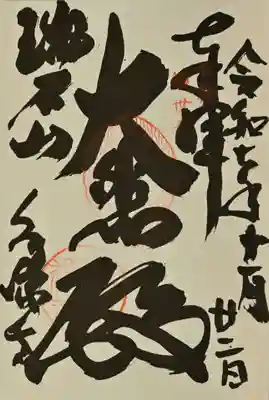 令和七年十一月廿二日
奉拝
大悲殿
瑞石山